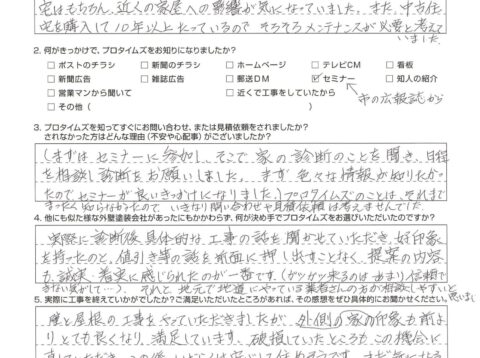 宅はもちろん、近くの家屋への影響が気になっていました。また、中古住
宅を購入して10年以上たっているので そろそろメンテナンスが必要と考えて
いました
2. 何がきっかけで、プロタイムズをお知りになりましたか?
□ ポストのチラシ □ 新聞のチラシ □ ホームページ □ テレビCM □ 看板
□ 新聞広告 □ 雑誌広告 □ 郵送DM ☑ セミナー □ 知人の紹介
□ 営業マンから聞いて □ 近くで工事をしていたから 市の広報誌から
□ その他 ( )
3. プロタイムズを知ってすぐにお問い合わせ、または見積依頼をされましたか?
されなかった方はどんな理由(不安や心配事)がございましたか?
(まずはセミナーに参加し、そこで家の診断のことを聞き、日程
を相談し診断をお願いしました。まず色々な情報が知りたかっ
たのでセミナーが良いきっかけになりました)プロタイムズのことは、それまで
まったく知らなかったので いきなり問い合わせや見積依頼は考えませんでした
4. 他にも似た様な外壁塗装会社があったにもかかわらず、何が決め手でプロタイムズをお選びいただいたのですか?
実際に診断後具体的な工事の話を聞かせていただき、好印象
を持ったのと、値引き等の話を前面に押し出すことなく、提案の内容
も誠実、着実に感じられたのが一番です。(ガツガツ来るのはあまり信頼で
きない気がして…)それと地元で地道にやっている業者さんの方が相談しやすいと
思いました
5. 実際に工事を終えていかがでしたか?ご満足いただいたところがあれば、その感想をぜひ具体的にお聞かせください。
壁と屋根の工事をやっていただきましたが、外側の家の印象も前よ
りとても良くなり、満足しています。破損していたところもこの機会に